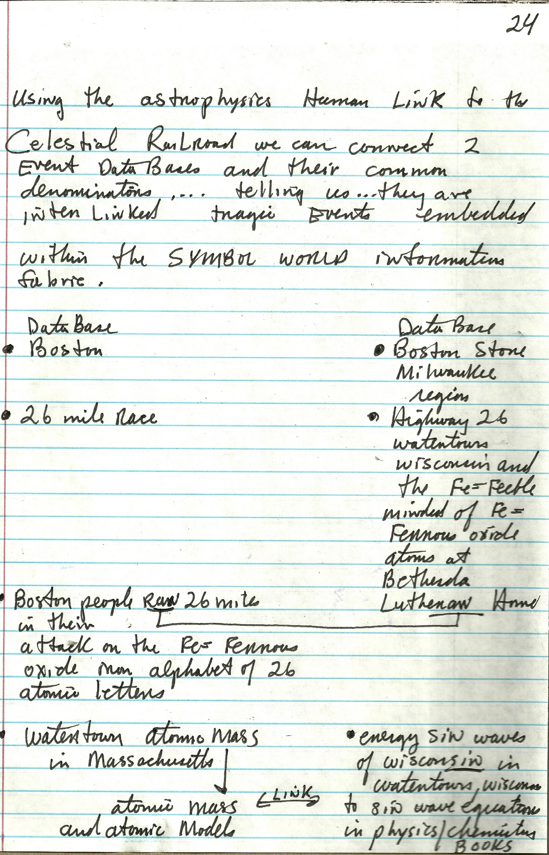 24
Using the astrophysics Human Link to the
Celestial Railroad we can connect 2
Event DataBases and their common
denominators .... telling us...they are
inter Linked tragic Events embedded
within the SYMBOL WORLD information
fabric.
DataBase
• Boston
• 26 mile Race
• Boston people Ran 26 miles
in their
attack on the Fe= Ferrous
oxide iron alphabet of 26
atomic letters
• Watertown atomic Mass
in Massachusetts
atomic mass
and atomic Models
LINK
DataBase
• Boston Stone
Milwaukee
region
• Highway 26
watertown
wisconsin and
the Fe=Feeble
minded of Fe=
Ferrous oxide
atoms at
Bethesda
Lutheran Home
• energy Sin waves
of wisconsin in
watertown, wisconsin
to sin wave equations
in physics/chemistry
BOOKS